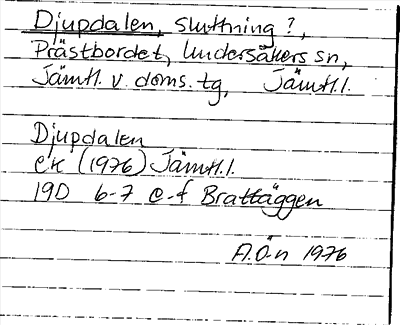 Djupdalen, sluttning?,
Prästbordet, Undersåkers sn,
Jämtl. v. doms. tg, Jämtl.l.
Djupdalen
ek (1976) Jämtl.l.
19D 6-7 e-f Brattäggen
A.Ö-n 1976